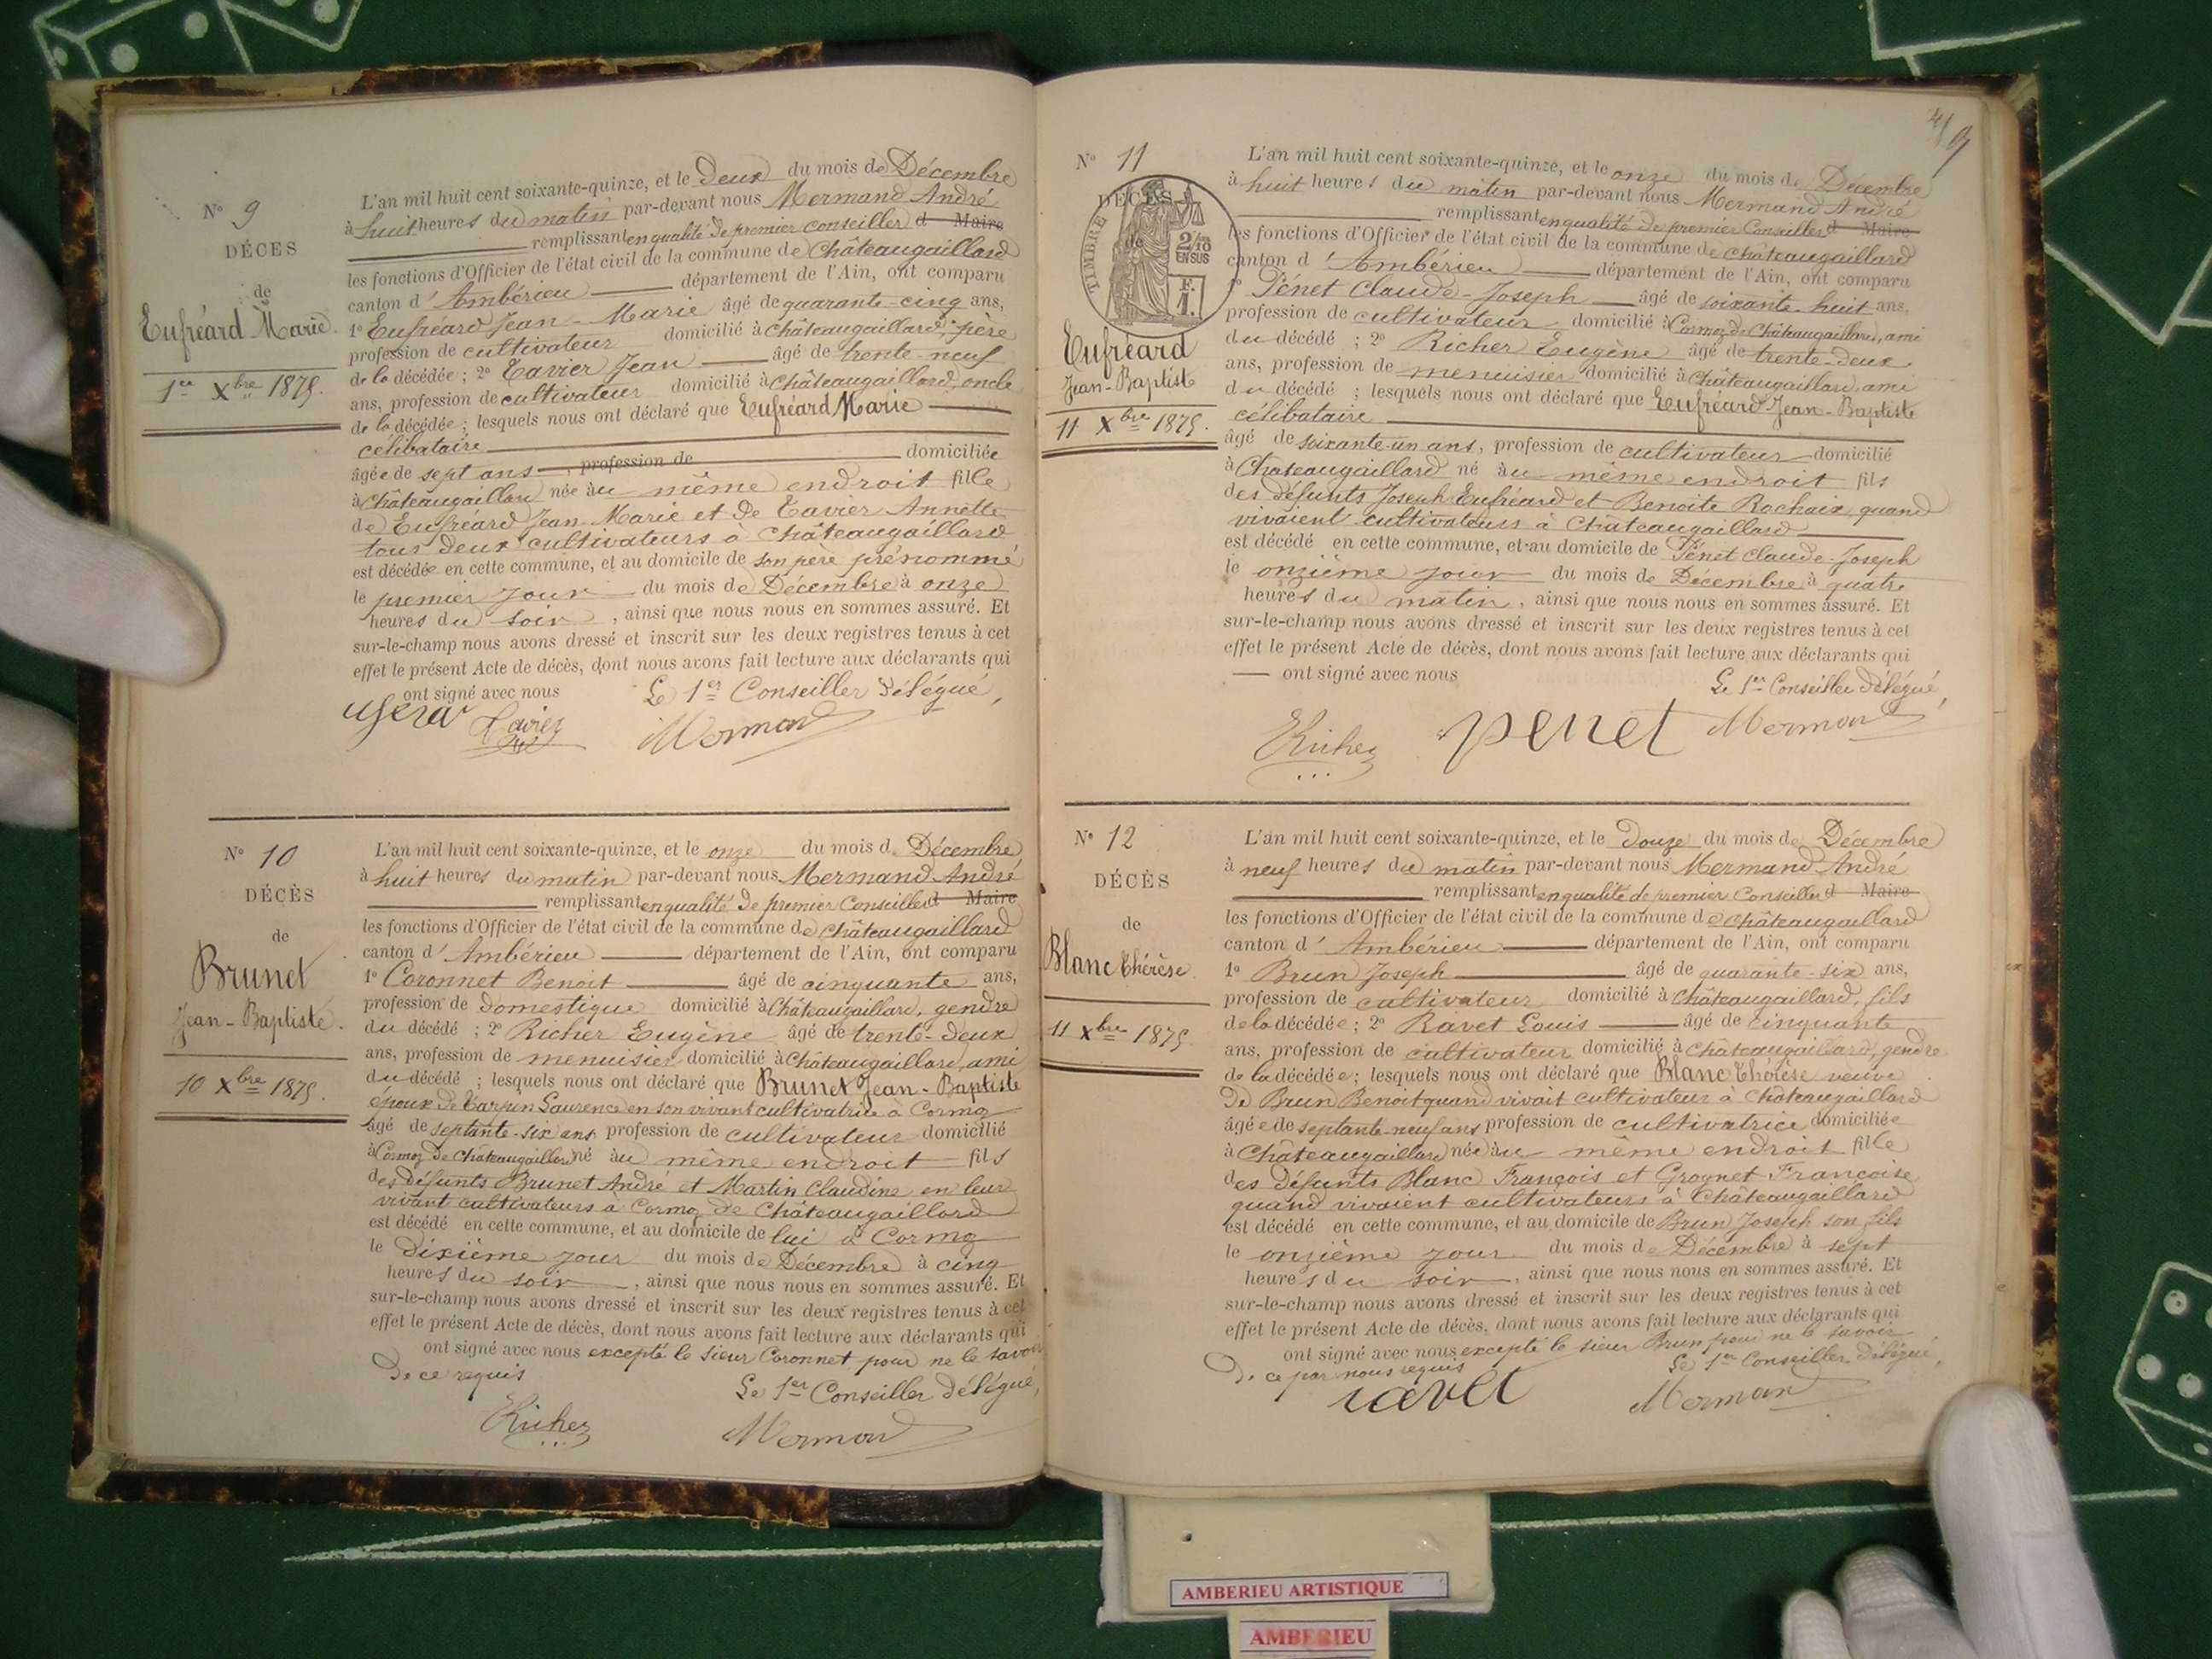 N° 9
DÉCES
de
Eufréard Marie.
1er Xbre 1875.
L'an mil huit cent soixante-quinze, et le deux du mois de Décembre
à huit heures du matin par-devant nous Mermand André
remplissant en qualité de premier conseiller d Maire
les fonctions d'Officier de l'état civil de la commune de Châteaugaillard
canton d'Ambérieu département de l'Ain, ont comparu
1° Eufréard Jean-Marie âgé de quarante-cinq ans,
profession de cultivateur domicilié à Châteaugaillard, père
de la décédée; 2° Tavier Jean âgé de trente-neuf
ans, profession de cultivateur domicilié à Châteaugaillard, oncle
de la décédée; lesquels nous ont déclaré que Eufréard Marie
célibataire
âgée de sept ans, profession de domiciliée
à Châteaugaillard née au même endroit fille
de Eufréard Jean-Marie et de Tavier Annette
tous deux cultivateurs à Châteaugaillard
est décédée en cette commune, et au domicile de son père prénommé
le premier jour du mois de Décembre à onze
heures du soir, ainsi que nous nous en sommes assuré. Et
sur-le-champ nous avons dressé et inscrit sur les deux registres tenus à cet
effet le présent Acte de décès, dont nous avons fait lecture aux déclarants qui
ont signé avec nous
Le 1er Conseiller Délégué,
Mermand
N° 10
DÉCÈS
de
Brunet
Jean-Baptiste.
10 Xbre 1875.
L'an mil huit cent soixante-quinze, et le onze du mois d Décembre
à huit heures du matin par-devant nous Mermand André
remplissant en qualité de premier Conseiller d Maire
les fonctions d'Officier de l'état civil de la commune de Châteaugaillard
canton d'Ambérieu département de l'Ain, ont comparu
1° Coronnet Benoit âgé de cinquante ans,
profession de domestique domicilié à Châteaugaillard, gendre
du décédé ; 2° Richer Eugène âgé de trente-deux
ans, profession de menuisier domicilié à Châteaugaillard, ami
du décédé ; lesquels nous ont déclaré que Brunet Jean-Baptiste
époux de Tarpin Laurence en son vivant cultivatrice à Cormoz
âgé de septante-six ans profession de cultivateur domicilié
à Cormoz de Châteaugaillard né au même endroit fils
des défunts Brunet André et Martin Claudine en leur
vivant cultivateurs à Cormoz de Châteaugaillard
est décédé en cette commune, et au domicile de lui à Cormoz
le dixième jour du mois de Décembre à cinq
heures du soir, ainsi que nous nous en sommes assuré. Et
sur-le-champ nous avons dressé et inscrit sur les deux registres tenus à cet
effet le présent Acte de décès, dont nous avons fait lecture aux déclarants qui
ont signé avec nous excepté le sieur Coronnet pour ne le savoir
de ce requis
Le 1er Conseiller Délégué,
ERicher
Mermand
N° 11
DÉCÈS
de
TIMBRE
2/10 EN SUS
F. 1.
Eufréard
Jean-Baptiste
11 Xbre 1875.
L'an mil huit cent soixante-quinze, et le onze du mois de Décembre
à huit heures du matin par-devant nous Mermand André
remplissant en qualité de premier Conseiller d Maire
les fonctions d'Officier de l'état civil de la commune de Châteaugaillard
canton d'Ambérieu département de l'Ain, ont comparu
1° Pénet Claude-Joseph âgé de soixante-huit ans,
profession de cultivateur domicilié à Cormoz de Châteaugaillard, ami
du décédé ; 2° Richer Eugène âgé de trente-deux
ans, profession de menuisier domicilié à Châteaugaillard, ami
du décédé ; lesquels nous ont déclaré que Eufréard Jean-Baptiste
célibataire
âgé de soixante-un ans, profession de cultivateur domicilié
à Châteaugaillard né au même endroit fils
des défunts Joseph Eufréard et Benoite Rochaix, quand
vivaient cultivateurs à Châteaugaillard
est décédé en cette commune, et au domicile de Pénet Claude-Joseph
le onzième jour du mois de Décembre à quatre
heures du matin, ainsi que nous nous en sommes assuré. Et
sur-le-champ nous avons dressé et inscrit sur les deux registres tenus à cet
effet le présent Acte de décès, dont nous avons fait lecture aux déclarants qui
ont signé avec nous
Le 1er Conseiller Délégué,
ERicher penet Mermand
N° 12
DÉCÈS
de
Blanc Thérèse.
11 Xbre 1875
L'an mil huit cent soixante-quinze, et le douze du mois de Décembre
à neuf heures du matin par-devant nous Mermand André
remplissant en qualité de premier Conseiller d Maire
les fonctions d'Officier de l'état civil de la commune de Châteaugaillard
canton d'Ambérieu département de l'Ain, ont comparu
1° Brun Joseph âgé de quarante-six ans,
profession de cultivateur domicilié à Châteaugaillard, fils
de la décédée; 2° Ravet Louis âgé de cinquante
ans, profession de cultivateur domicilié à Châteaugaillard, gendre
de la décédée; lesquels nous ont déclaré que Blanc Thérèse veuve
de Brun Benoit quand vivait cultivateur à Châteaugaillard
âgée de septante-neuf ans profession de cultivatrice domiciliée
à Châteaugaillard née au même endroit fille
des défunts Blanc François et Grognet Françoise
quand vivaient cultivateurs à Châteaugaillard
est décédé en cette commune, et au domicile de Brun Joseph son fils
le onzième jour du mois de Décembre à sept
heures du soir, ainsi que nous nous en sommes assuré. Et
sur-le-champ nous avons dressé et inscrit sur les deux registres tenus à cet
effet le présent Acte de décès, dont nous avons fait lecture aux déclarants qui
ont signé avec nous excepté le sieur Brun pour ne le savoir
de ce par nous requis
Le 1er Conseiller Délégué,
ravet
Mermand
AMBERIEU ARTISTIQUE
AMBERIEU